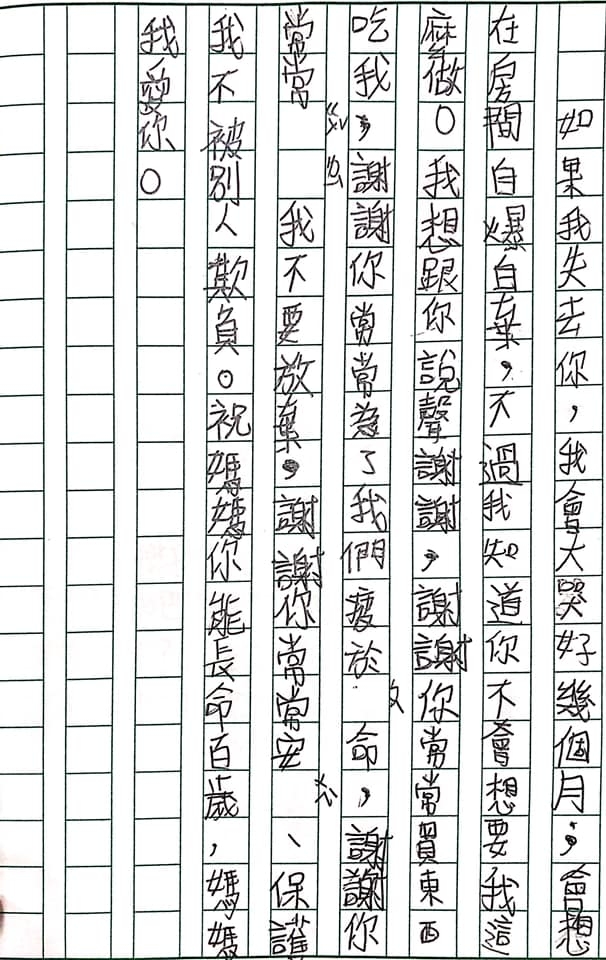 如果我失去你，我會大哭好幾個月，會想
在房間自爆自棄，不過我知道你不會想要我這
麼做。我想跟你說聲謝謝，謝謝你常常買東西
吃我，謝謝你常常為了我們疲於命，謝謝你
常常我不要放棄，謝謝你常常安、保護
我不被別人欺負。祝媽媽你能長命百歲，媽媽
我愛你。